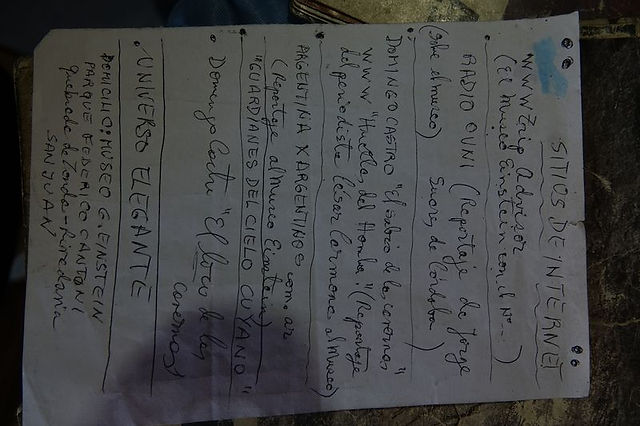 SITIOS DE INTERNET
• WWW Trip Advisor
(El museo Einstein con el Nº -- )
• RADIO OVNI (Reportaje de Jorge
(Sobre el museo) Suarez de Córdoba )
DOMINGO CASTRO "El sabio de las cavernas"
WWW "Huellas del Hombre" (Reportaje
del periodista Cesar Carmona al Museo)
• ARGENTINA XARGENTINOS com.ar
(Reportaje al Museo Einstein)
• "GUARDIANES DEL CIELO CUYANO"
• Domingo Castro "El loco de las
cavernas)
• UNIVERSO ELEGANTE
DOMICILIO: MUSEO G. EINSTEIN
PARQUE FEDERICO CANTONI
quebrada de Zonda - Rivadavia
SAN JUAN